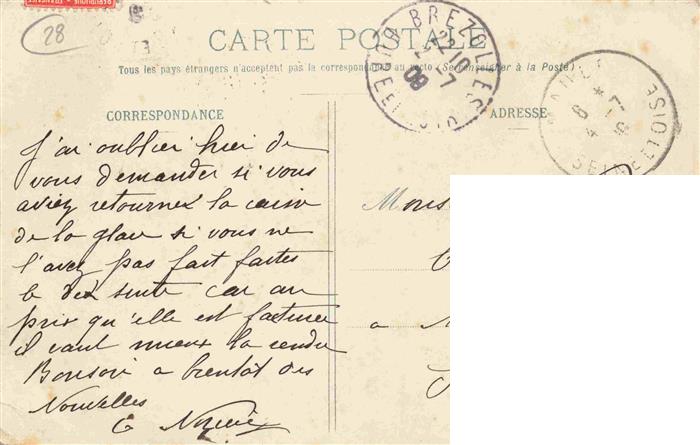 28
CARTE POSTALE
Tous les pays étrangers n'acceptent pas la correspondance au recto (Se renseigner à la Poste)
CORRESPONDANCE
ADRESSE
BREZOLLES
22 10
7
09
EURE
6 *
4 7
SEINE ET OISE
J'ai oublier hier de
vous demander si vous
aviez retournez la caisse
de la glace si vous ne
l'avez pas fait faites
le dès suite car au
prix qu'elle est facturer
il vaut mieux la rendre
Bonsoir a bientôt des
Nouvelles
Mons
a